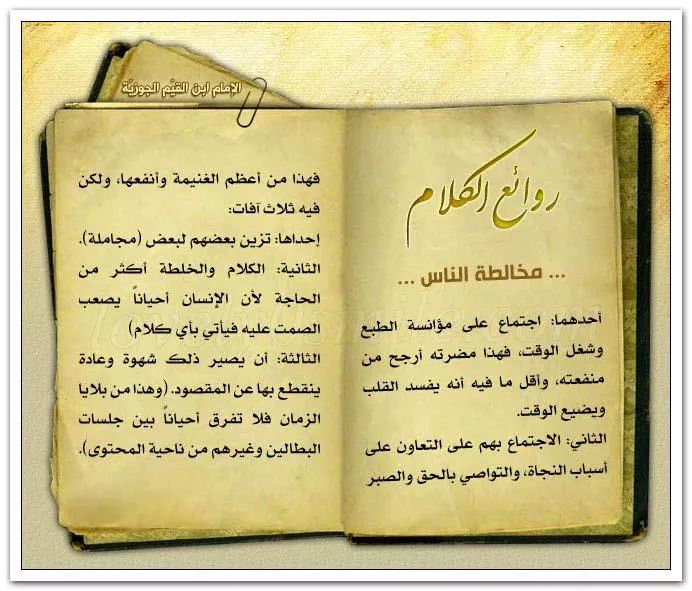 الإمام ابن القيّم الجوزيّة
روائع الكلام
... مخالطة الناس ...
أحدهما: اجتماع على مؤانسة الطبع
وشغل الوقت، فهذا مضرته أرجح من
منفعته، وأقل ما فيه أنه يفسد القلب
ويضيع الوقت.
الثاني: الاجتماع بهم على التعاون على
أسباب النجاة، والتواصي بالحق والصبر
فهذا من أعظم الغنيمة وأنفعها، ولكن
فيه ثلاث آفات:
إحداها: تزين بعضهم لبعض (مجاملة).
الثانية: الكلام والخلطة أكثر من
الحاجة لأن الإنسان أحياناً يصعب
الصمت عليه فيأتي بأي كلام)
الثالثة: أن يصير ذلك شهوة وعادة
ينقطع بها عن المقصود. (وهذا من بلايا
الزمان فلا تفرق أحياناً بين جلسات
البطالين وغيرهم من ناحية المحتوى).